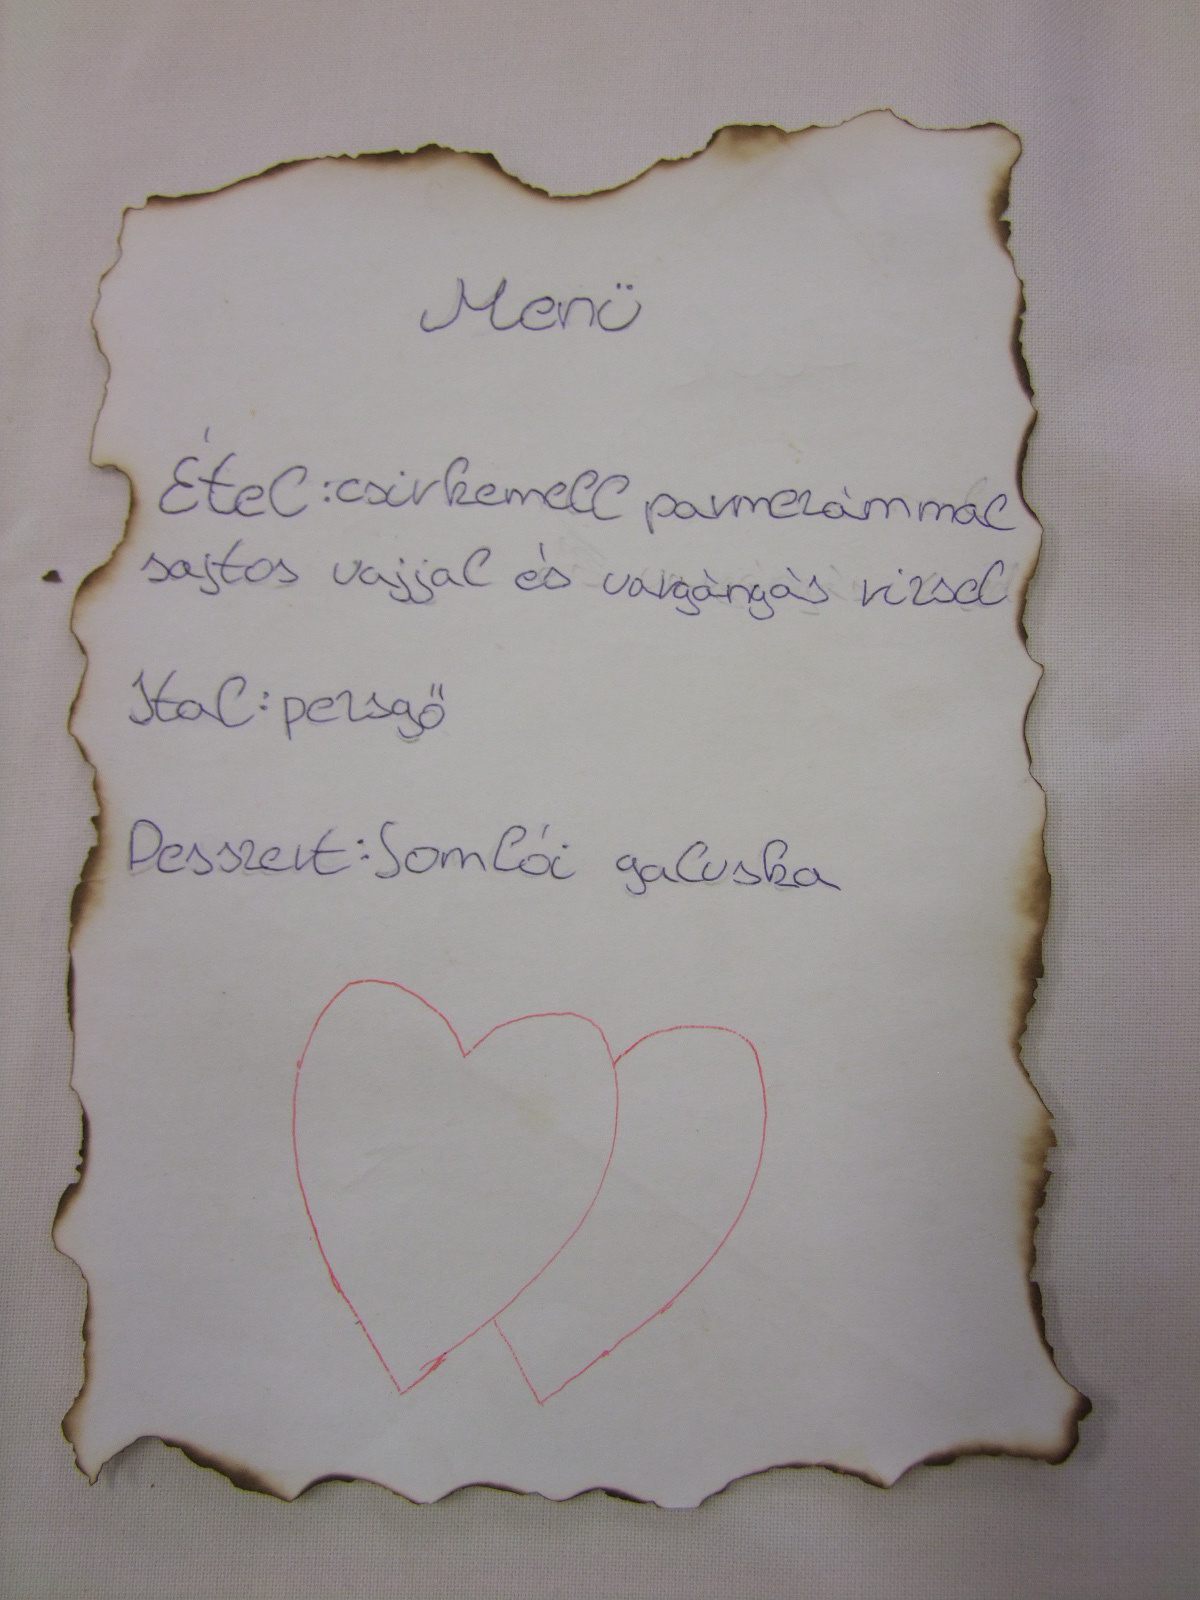 Menü
Étel:csirkemell parmezámmal
sajtos vajjal és vargàngàs rizsel
Ital:pezsgő
Desszert:Somlói galuska